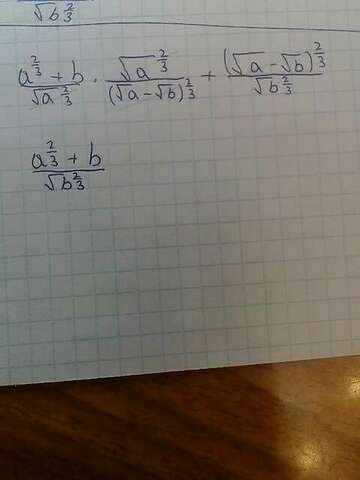 √b^(2/3)
(a^(2/3) + b)/(√a^(2/3)) · (√a^(2/3))/((√a - √b)^(2/3)) + ((√a - √b)^(2/3))/(√b^(2/3))
(a^(2/3) + b)/(√b^(2/3))